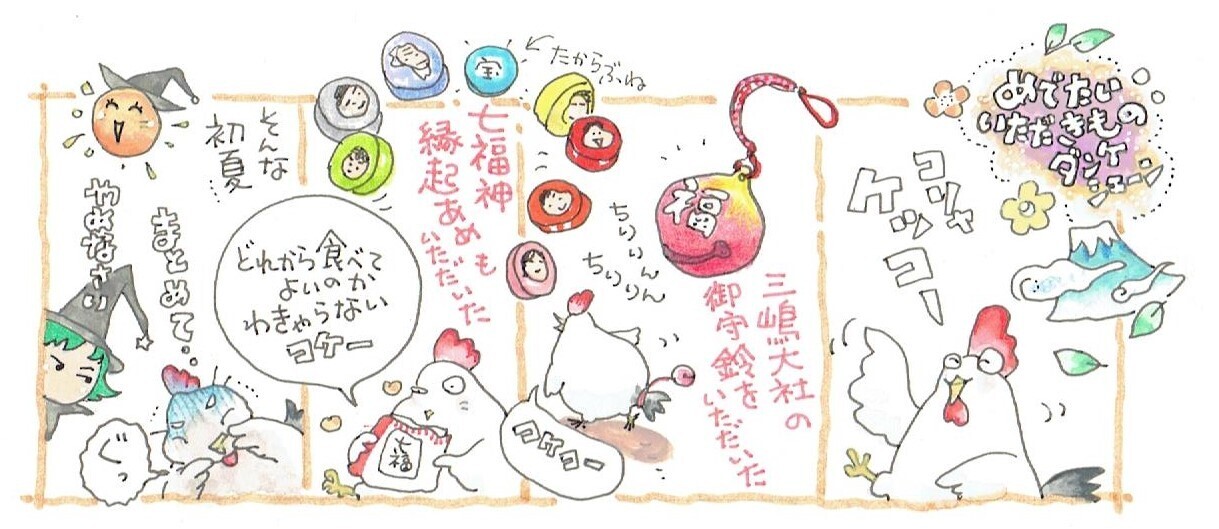 めでたい
いただきもの
ダンケ
シェーン
コリャ
ケッコー
福
三嶋大社の
御守鈴を
いただいた
ちりりん
ちりりん
コケコー
たからぶね
宝
七福神
縁起あめも
いただいた
どれから食べて
よいのか
わきゃらない
コケー
七福
そんな
初夏
まとめて‥
ぐっ
やめなさい